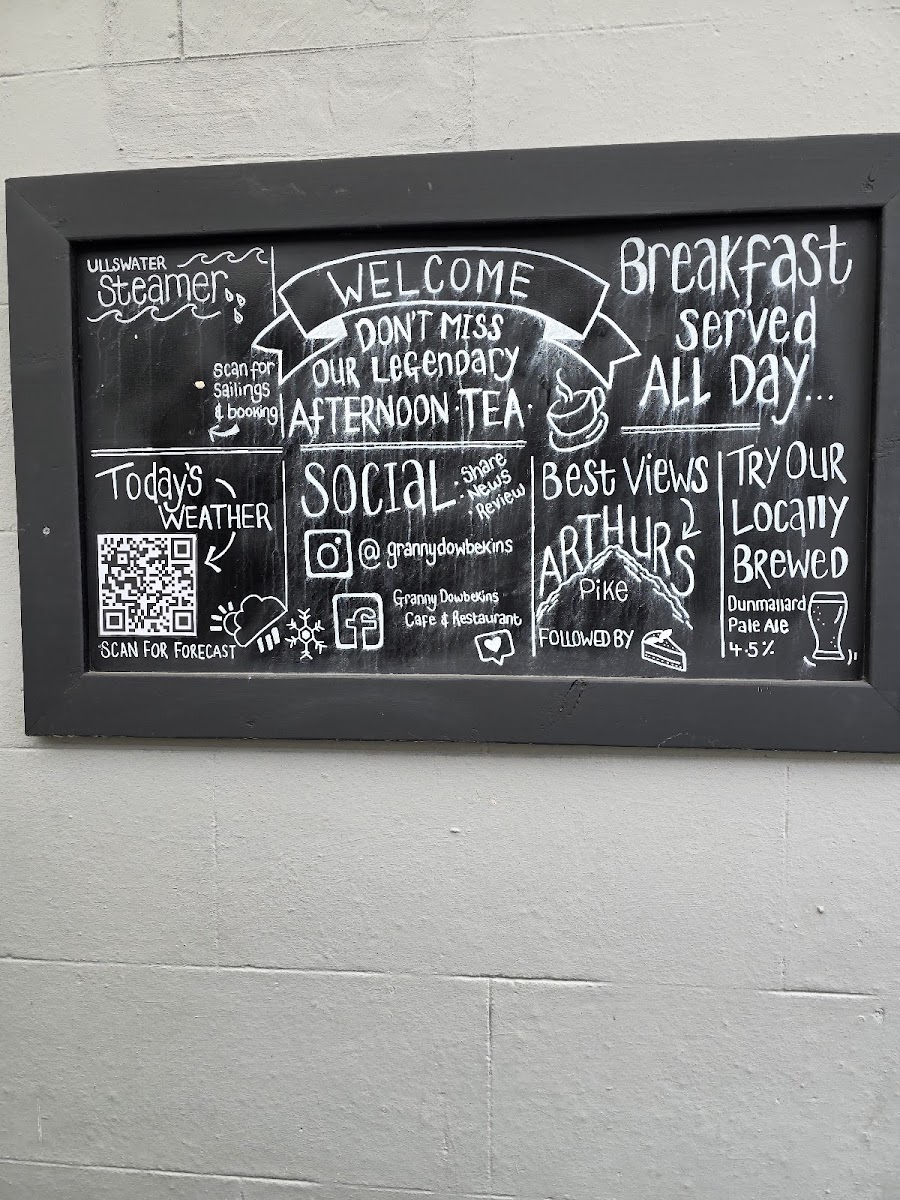 ULLSWATER
Steamer
scan for
sailings
& booking
WELCOME
DON'T MISS
OUR LEGENDARY
AFTERNOON·TEA·
Breakfast
served
ALL DAY...
Today's
WEATHER
SCAN FOR FORECAST
SOCIAL
·Share
·News
·Review
@grannydowbekins
Granny Dowbekins
Cafe & Restaurant
Best Views
ARTHURS
Pike
FOLLOWED BY
TRY OUR
Locally
BREWED
Dunmallard
Pale Ale
4.5%